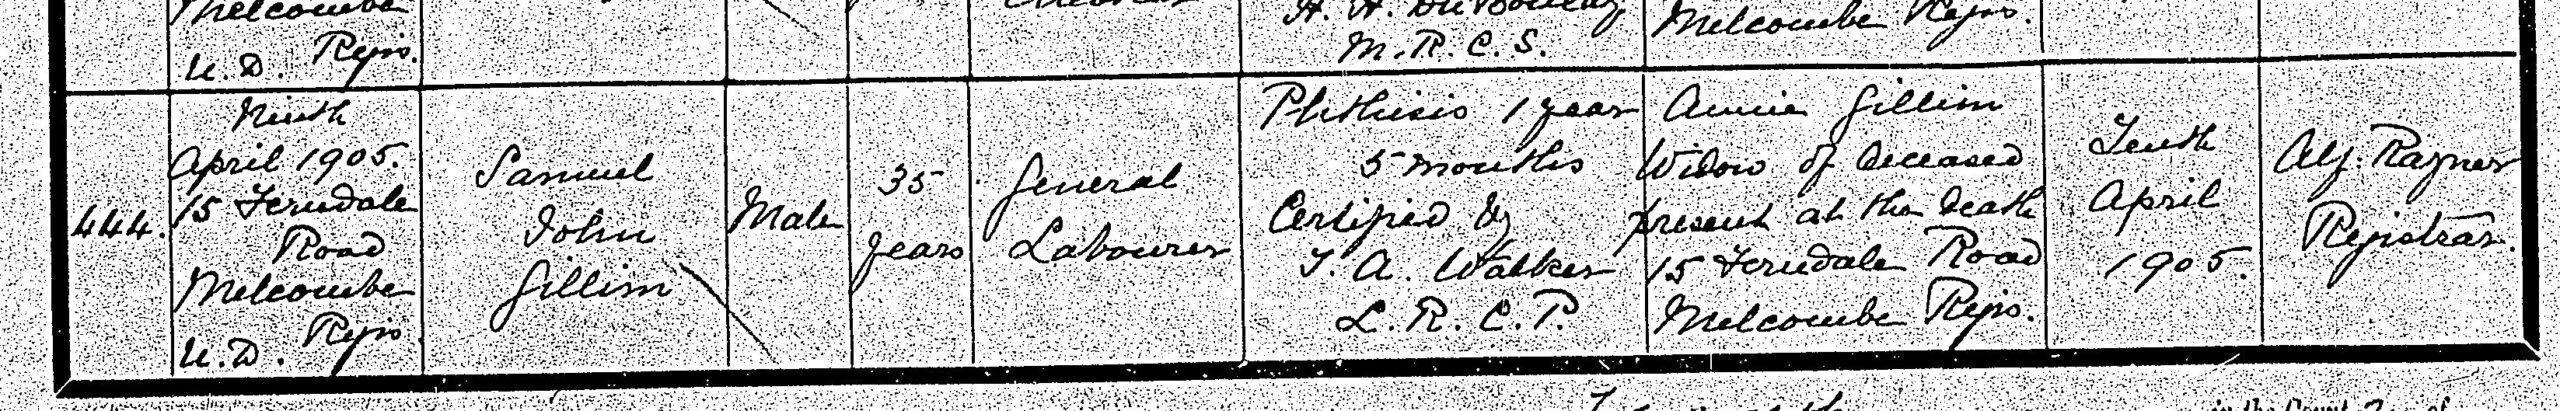 Melcombe
U.D. Regis.
H. H. Du Boulay
M.R.C.S.
Melcombe Regis.
444.
Ninth
April 1905.
15 Ferndale
Road
Melcombe
Regis
U.D.
Samuel
John
Gillim
Male
35
years
General
Labourer
Phthisis 1 year
5 months
Certified by
T. A. Walker
L.R.C.P.
Annie Gillim
Widow of deceased
present at the death
15 Ferndale Road
Melcombe Regis.
Tenth
April
1905.
Alf. Rayner
Registrar.
in the Count of